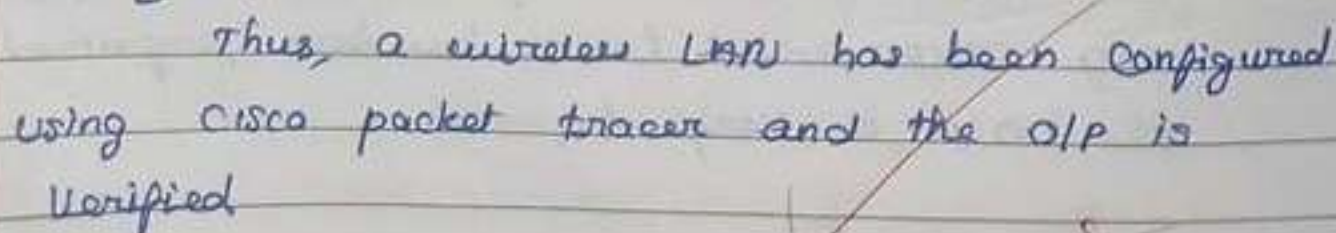 Thus, a wireless LAN has been configured
using cisco packet tracer and the o/p is
Verified